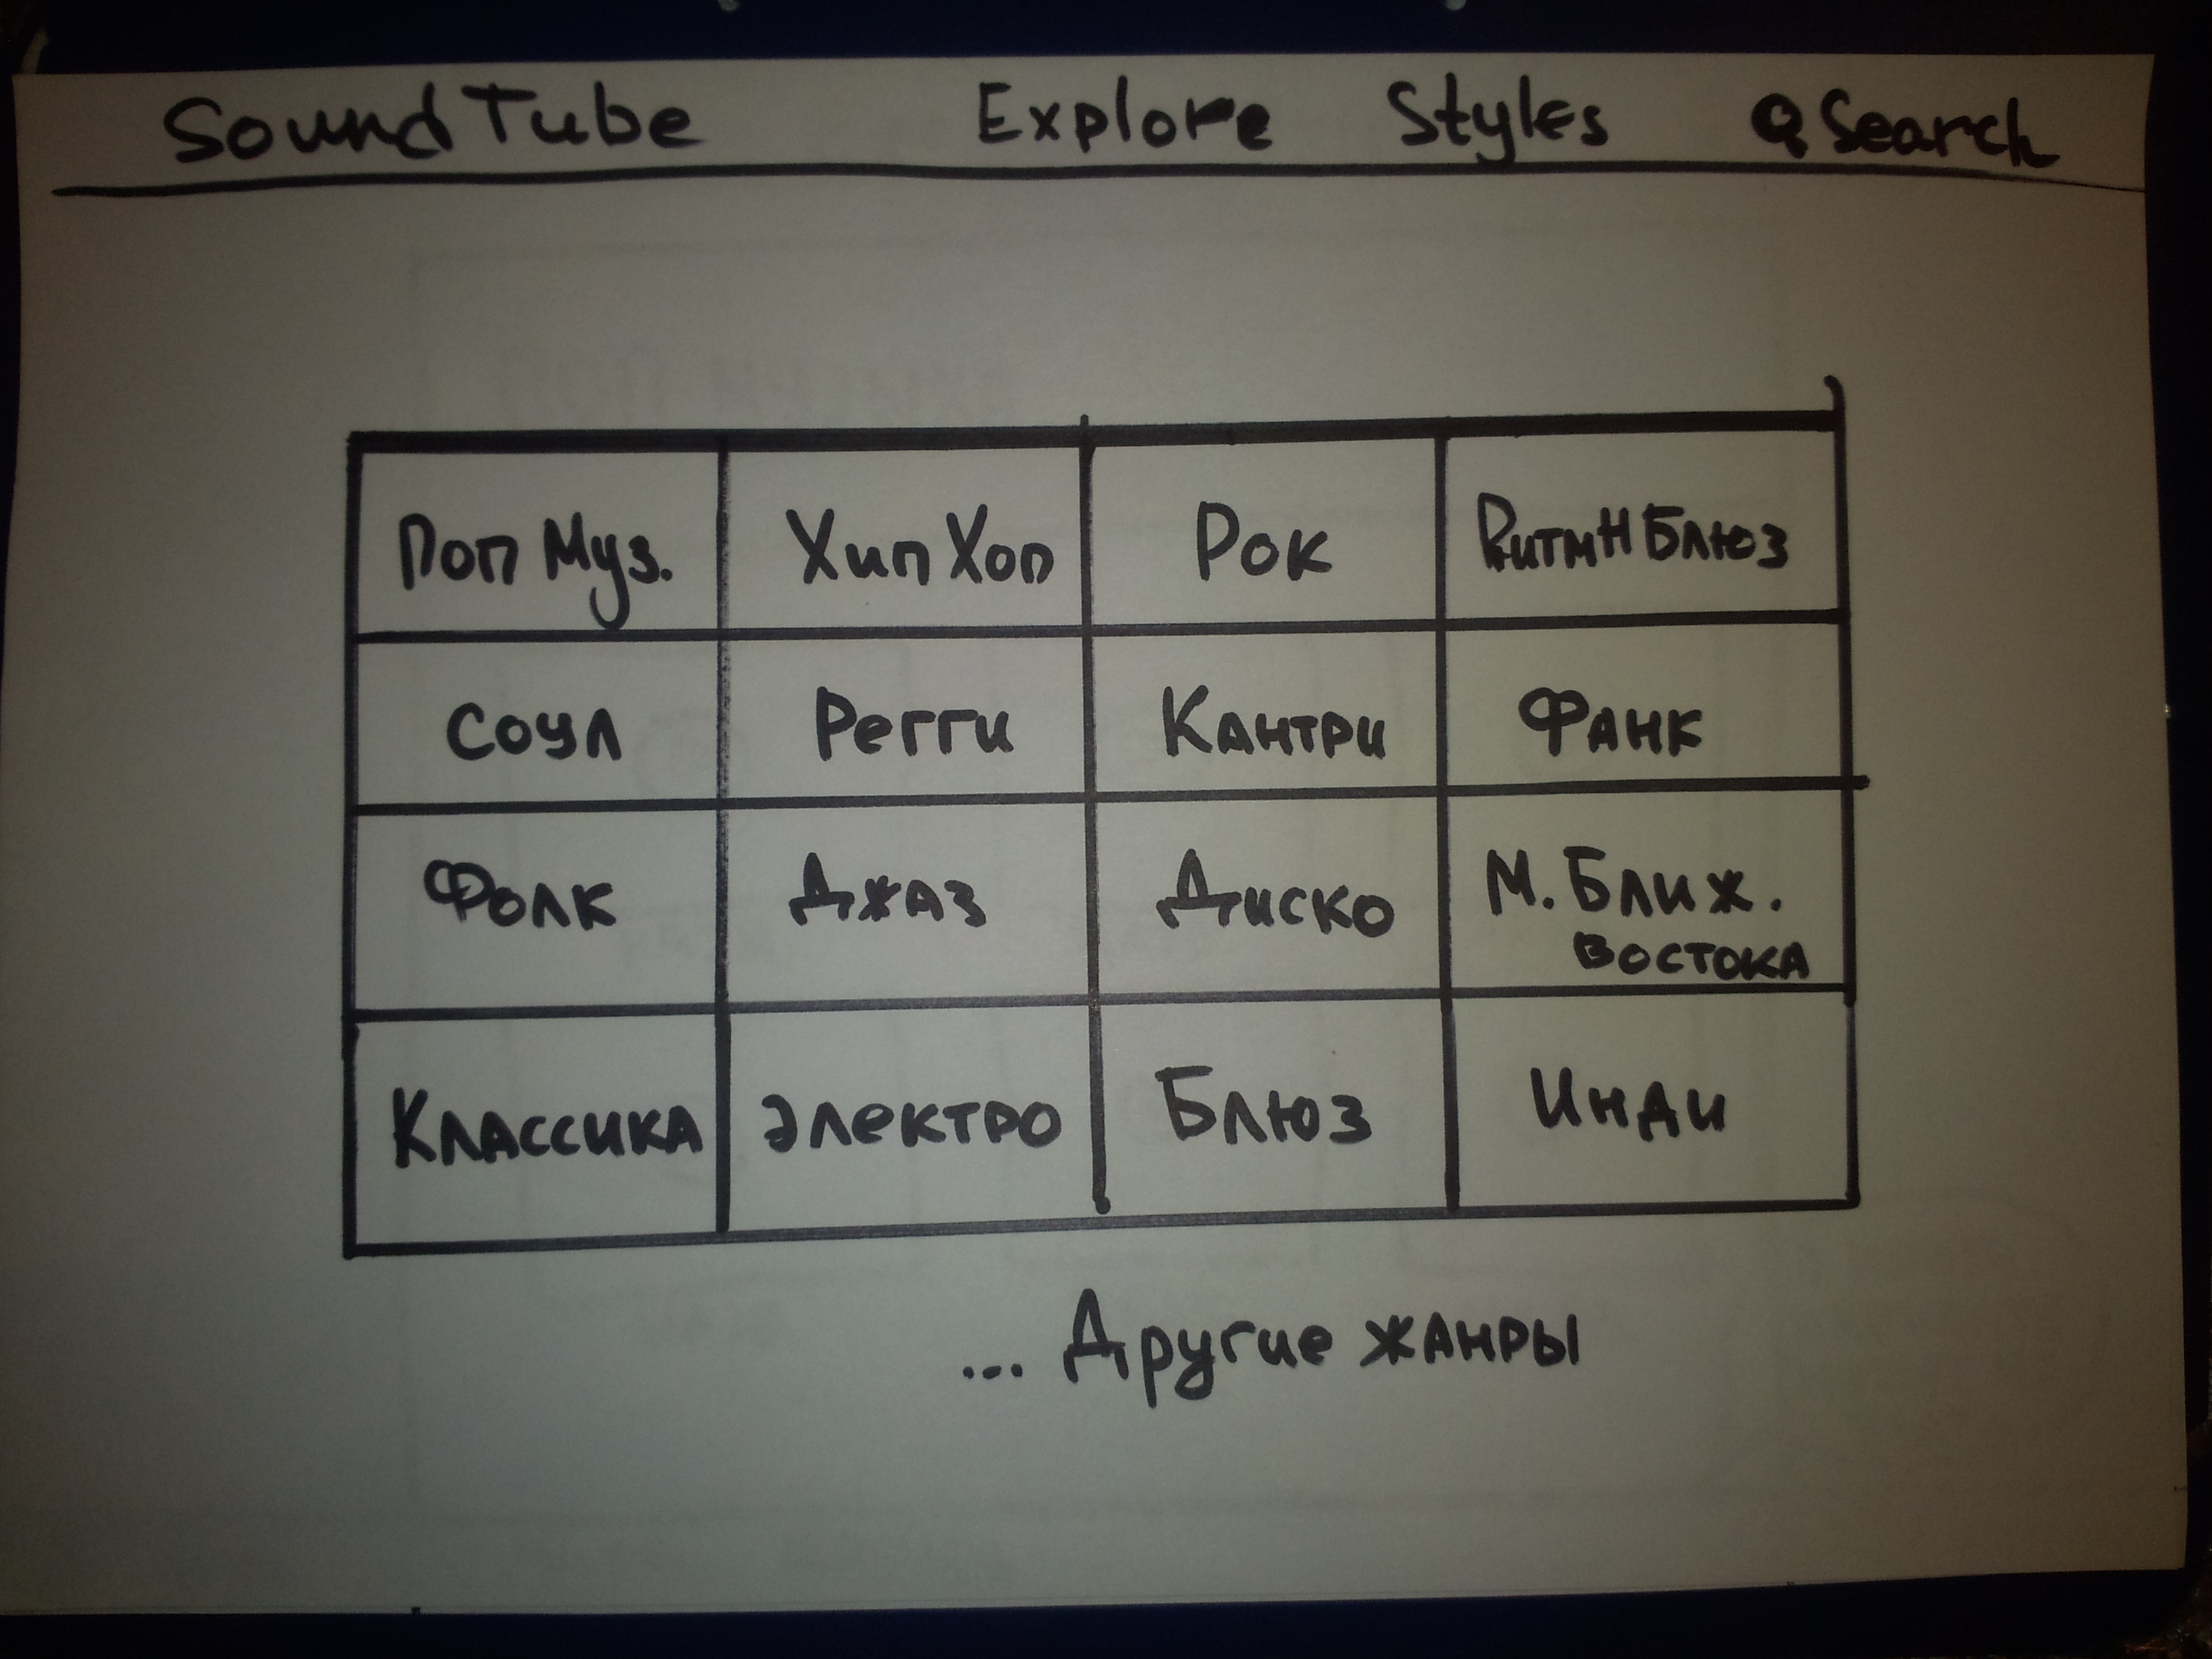 SoundTube Explore Styles Search
Поп Муз. Хип Хоп Рок РитмНБлюз
Соул Регги Кантри Фанк
Фолк Джаз Диско М. Ближ.
Востока
Классика Электро Блюз Инди
... Другие жанры